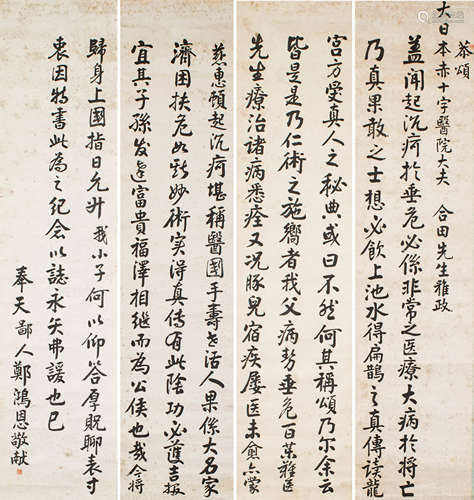 恭頌
大日本赤十字醫院大夫 合田先生雅政
蓋聞起沉疴於垂危必係非常之医療大病於將亡
乃真果敢之士想必飲上池水得扁鵲之真傳讀龍
宮方受真人之秘典或曰不然何其稱頌乃尔余云
皆是是乃仁術之施嚮者我父病势垂危百藥雜医
先生療治諸病悉痊又况豚兒宿疾屡医未愈亦蒙
慈惠頓起沉疴堪稱醫國手壽世活人果係大名家
濟困扶危如斯妙術實得真传有此陰功必護吉报
宜其子孫发達富貴福澤相继而為公侯也哉今將
歸身上國指日允升我小子何以仰答厚貺聊表寸
衷因特書此為之纪念以誌永矢弗諼也已
奉天鄙人鄭鴻恩敬献